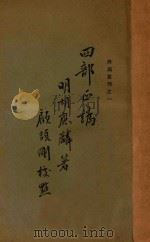 四部正譌
明胡應麟著
顧頡剛校點